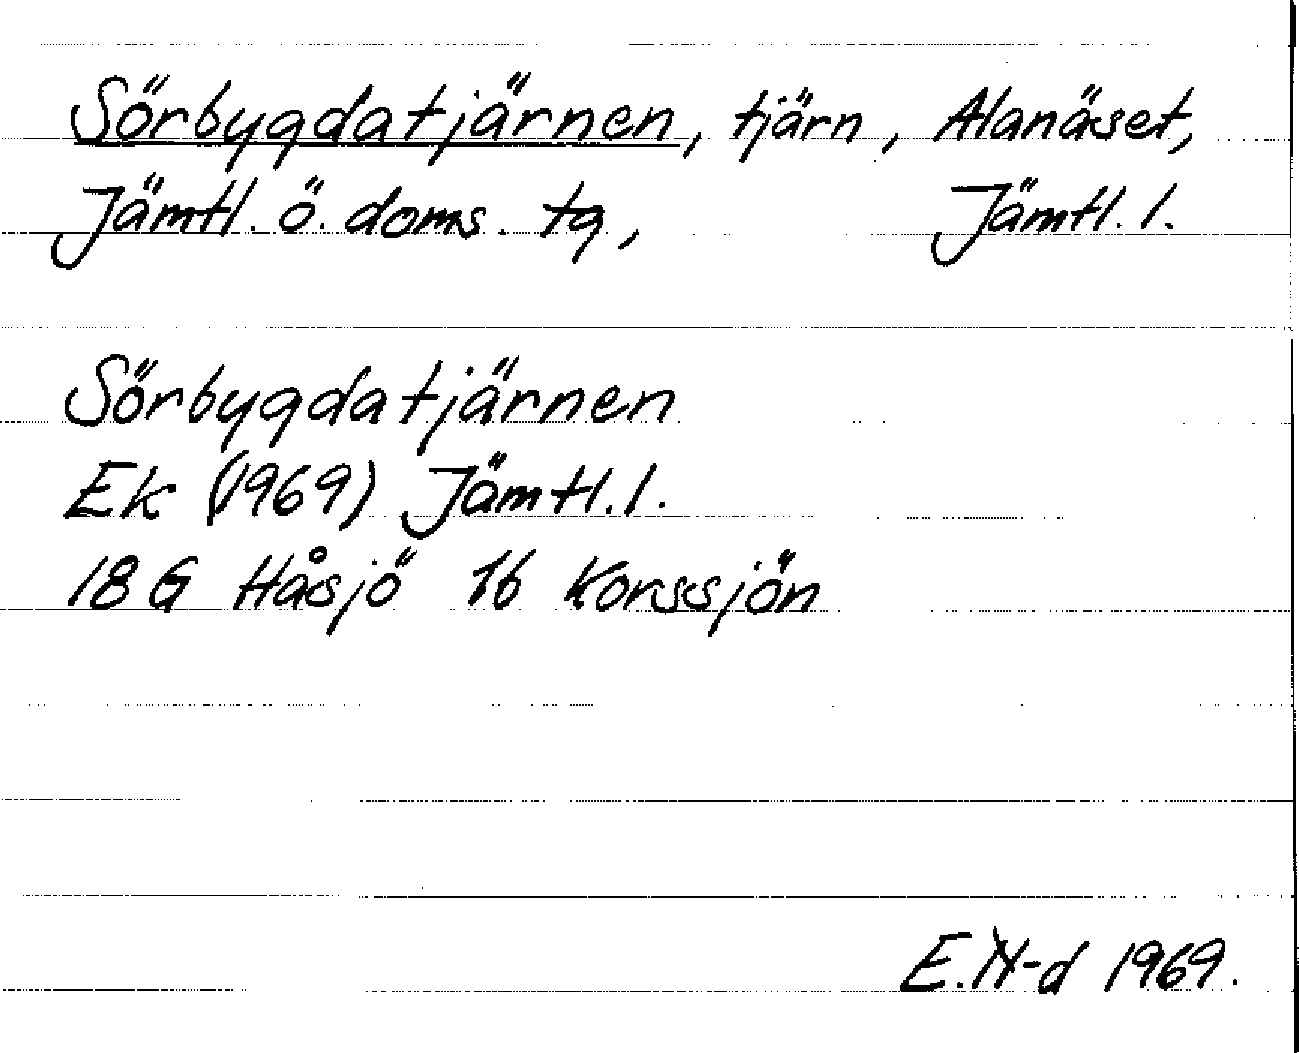 Sörbygdatjärnen, tjärn, Alanäset,
Jämtl. ö. doms. tg, Jämtl. l.
Sörbygdatjärnen
Ek (1969) Jämtl. l.
18 G Håsjö 1b Korssjön
E. N-d 1969.